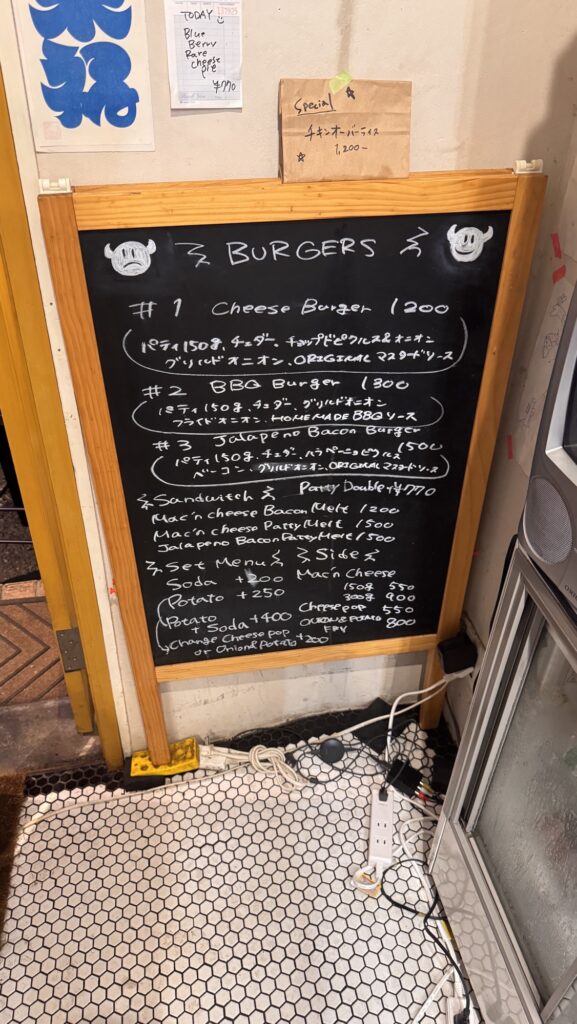 TODAY
Blue
Berry
Rare
cheese
pie
¥770
Special
チキンオーバーライス
1,200-
BURGERS
#1 Cheese Burger 1200
パティ150g、チェダー、チョップドピクルス&オニオン
グリルドオニオン、ORIGINAL マスタードソース
#2 BBQ Burger 1300
パティ150g、チェダー、グリルドオニオン
フライドオニオン、HOMEMADE BBQ ソース
#3 Jalapeno Bacon Burger
1500
パティ150g、チェダー、ハラペーニョピクルス
ベーコン、グリルドオニオン、ORIGINAL マスタードソース
Patty Double +¥770
Sandwitch
Mac'n cheese Bacon Melt 1200
Mac'n cheese Patty Melt 1500
Jalapeno Bacon Patty Melt 1500
Set Menu
Soda +200
Potato +250
Potato
+ Soda +400
Change Cheese pop
or Onion&Potato +200
Side
Mac'n Cheese
150g 550
300g 900
Cheese pop 550
ONION & POTATO 800
FRY